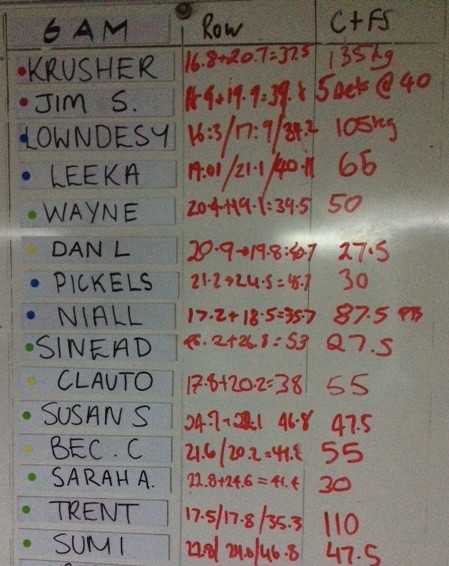 6 AM Row C+FS
KRUSHER 16.8+20.7=37.5 135kg
JIM S. 5 sets @ 40
LOWNDESY 16:3/17:9/34.2 105kg
LEEKA 19.01/21.1/40.11 65
WAYNE 20.4+19.1=39.5 50
DAN L 20.9+19.8=40.7 27.5
PICKELS 21.2+24.5=45.7 30
NIALL 17.2+18.5=35.7 87.5 PB
SINEAD 27.5
CLAUTO 17.8+20.2=38 55
SUSAN S 46.8 47.5
BEC. C 55
SARAH A. 22.8+24.6=41.4 30
TRENT 17.5/17.8/35.3 110
SUMI 47.5